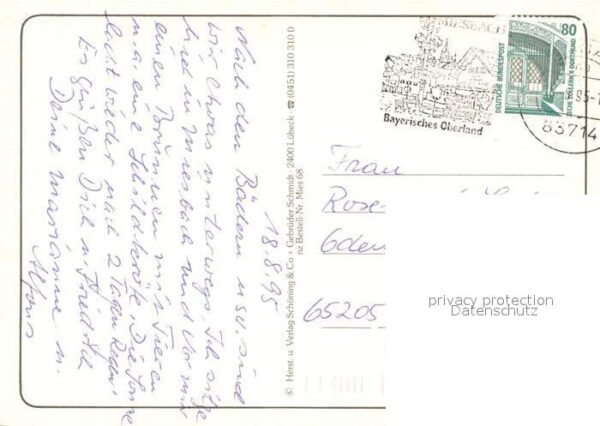 18.8.95
Nach den Bädern usw. sind
wir etwas unterwegs. Ich sitze
hier in Miesbach und vor mir
einen Brunnen mit Tieren
u.a. eine Schildkröte. Die Sonne
lacht wieder nach 2 Tagen Regen.
Es grüßen Dich u. Friedrich
Deine Marianne u.
Alfons
© Herst. u. Verlag Schöning & Co + Gebrüder Schmidt · 2400 Lübeck · ☎ (0451) 310 310 0
nz Bestell-Nr. Mies 68
MIESBACH
Bayerisches Oberland
80
DEUTSCHE BUNDESPOST
ZECHE ZOLLERN II DORTMUND
95-1
83714
Frau
Rose
Gden
65205
privacy protection
Datenschutz